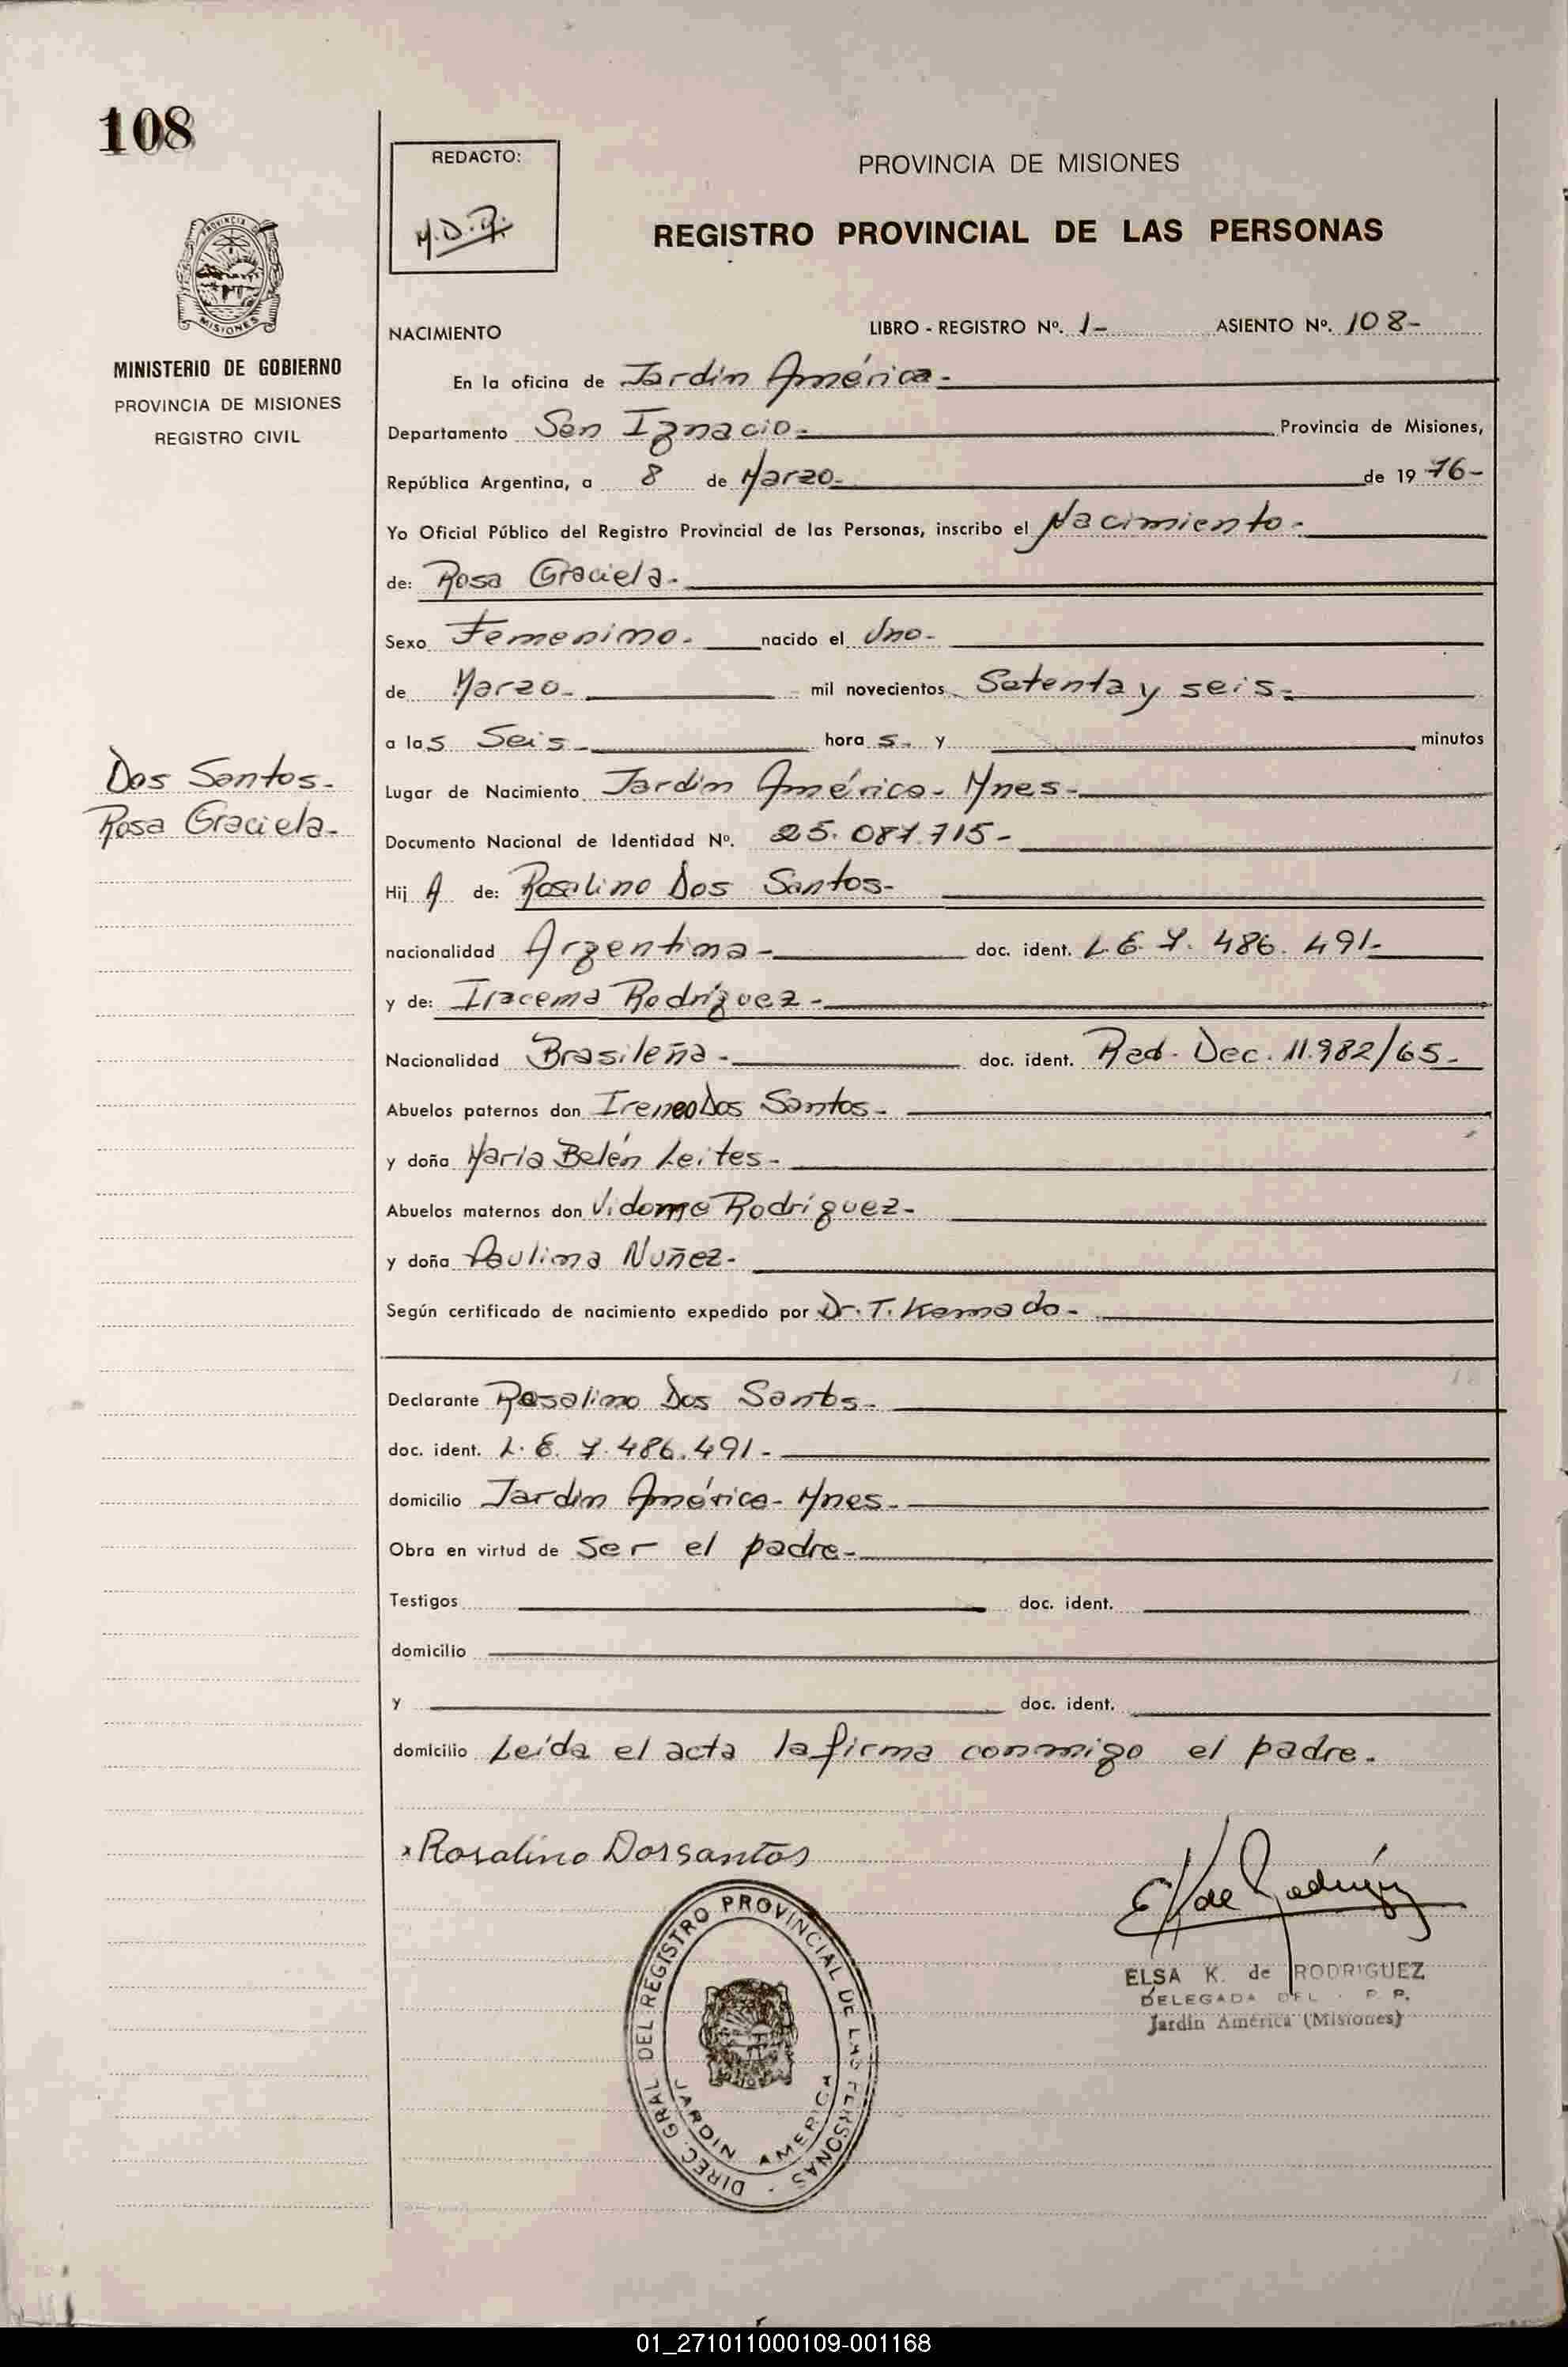 108
REDACTO:
M.D.R.
PROVINCIA DE MISIONES
REGISTRO PROVINCIAL DE LAS PERSONAS
PROVINCIA
MISIONES
MINISTERIO DE GOBIERNO
PROVINCIA DE MISIONES
REGISTRO CIVIL
NACIMIENTO LIBRO - REGISTRO Nº. 1- ASIENTO Nº. 108-
En la oficina de Jardín América-
Departamento San Ignacio- Provincia de Misiones,
República Argentina, a 8 de Marzo- de 1976-
Yo Oficial Público del Registro Provincial de las Personas, inscribo el Nacimiento-
de: Rosa Graciela-
Sexo Femenino- nacido el Uno-
de Marzo- mil novecientos Setenta y seis-
a las Seis- horas- y minutos
Dos Santos-
Rosa Graciela-
Lugar de Nacimiento Jardín América- Mnes-
Documento Nacional de Identidad Nº. 25.087.715-
Hij A de: Rosalino Dos Santos-
nacionalidad Argentina- doc. ident. L.E. 7.486.491-
y de: Iracema Rodríguez-
Nacionalidad Brasileña- doc. ident. Rad. Dec. 11.982/65-
Abuelos paternos don Ireneo Dos Santos-
y doña María Belén Leites-
Abuelos maternos don Rodríguez-
y doña Paulina Nuñez-
Según certificado de nacimiento expedido por Dr. T. Kamada-
Declarante Rosalino Dos Santos-
doc. ident. L.E. 7.486.491-
domicilio Jardín América- Mnes-
Obra en virtud de Ser el padre-
Testigos doc. ident.
domicilio
y doc. ident.
domicilio Leída el acta la firma conmigo el padre-
Rosalino Dorsantos
E K de Rodriguez
ELSA K. de RODRIGUEZ
DELEGADA DEL R. P. P.
Jardín América (Misiones)
DIREC. GRAL DEL REGISTRO PROVINCIAL DE LAS PERSONAS -
JARDIN AMERICA
01_271011000109-001168